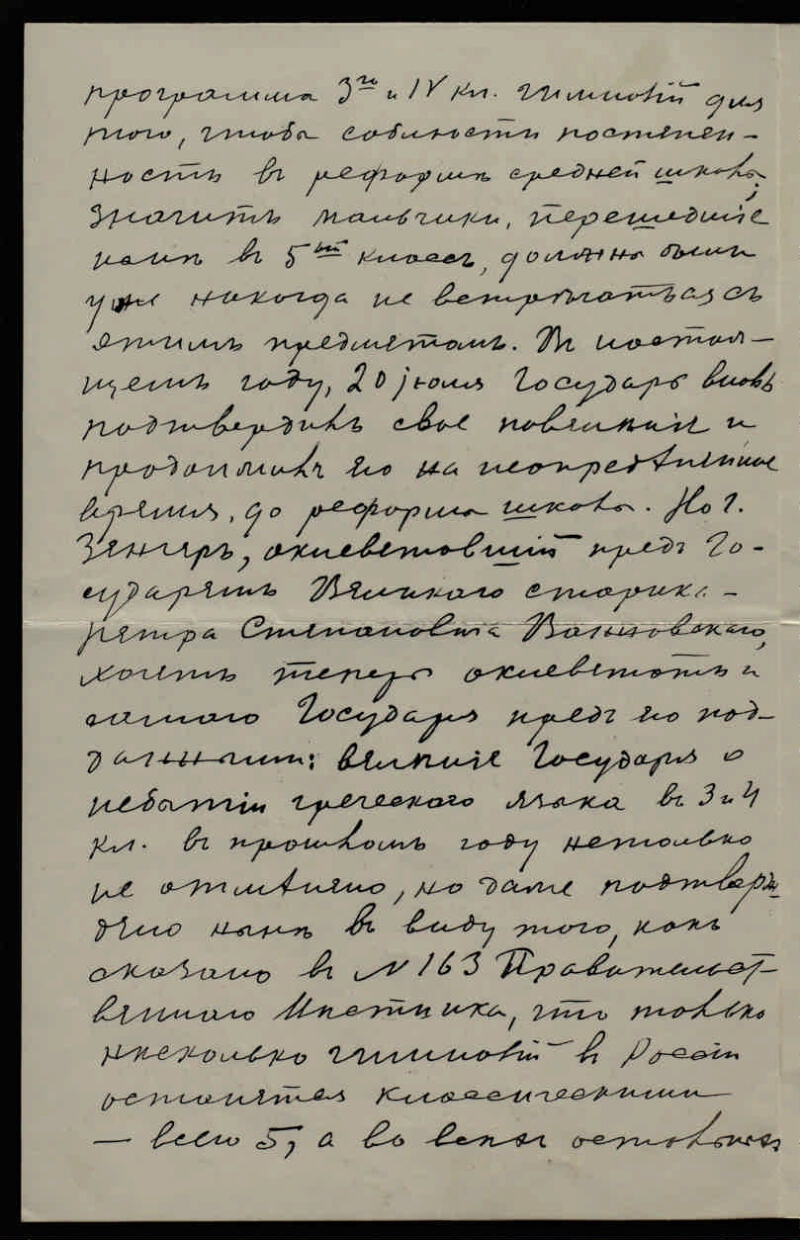 программа 3го и IV кл. гимназiй для
того, чтобы соблюсти постепен-
ность въ реформѣ средней школы;
значитъ мальчики, перешедшiе
нынѣ въ 5ый классъ, должны были
уже никогда не встрѣчаться съ
этимъ предметомъ. Въ настоя-
щемъ году, 20 iюля Государь вновь
подтвердилъ свое повелѣнiе и
продолжилъ его на неопредѣленное
время, до реформы школы. Но г.
Зенгеръ, оклеветавшiй предъ Го-
сударемъ Великаго старика -
Петра Степановича Ванновскаго,
хочетъ теперь оклеветать и
самого Государя предъ его под-
данными: велѣнiе Государя о
небытiи греческаго языка въ 3 и 4
кл. въ прошломъ году нетолько
не отмѣнено, но даже подтверж-
дено нынѣ въ виду того, какъ
сказано въ N 163 Правительст-
веннаго Вѣстника, что только
нѣсколько гимназiй въ Россiи
останутся классическими
— всего 5, а во всѣхъ остальныхъ